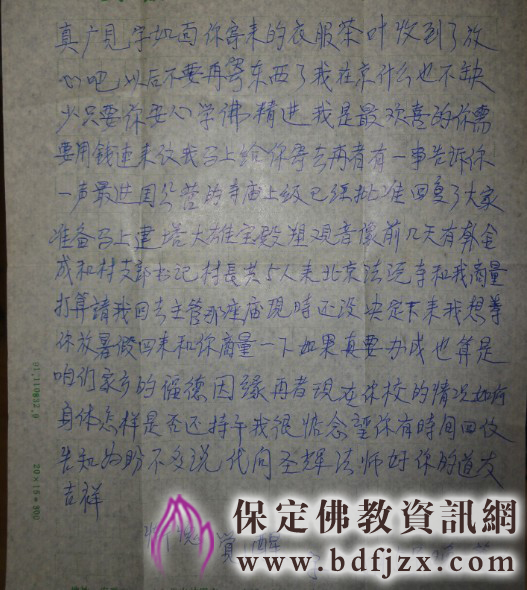 真广见字如面你寄来的衣服茶叶收到了放
心吧以后不要再寄东西了我在京什么也不缺
少只要你安心学佛精进我是最欢喜的你需
要用钱速来信我马上给你寄去再者有一事告诉你
一声最进固公营的寺庙上级已经批准回复了大家
准备马上建塔大雄宝殿塑观音像前几天有群金
成和村支部书记村長共5人来北京法源寺和我商量
打算請我回去主管那座庙現時还没决定下来我想等
你放暑假回来和你商量一下如果真要办成也算是
咱们家乡的福德因缘再者現在你校的情况如何
身体怎样是否还持午我很惦念望你有時间回信
告知为盼不多说代向圣辉法师好你的道友
吉祥
师悦觉醒
保定佛教資訊網
www.bdfjzx.com
20×15=300